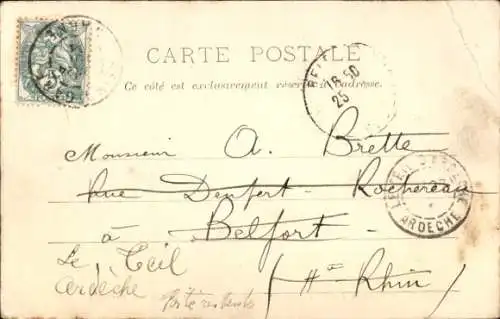 CARTE POSTALE
Ce côté est exclusivement réservé à l'adresse.
16 50
25
Monsieur A. Brette
Rue Denfert-Rochereau
à Belfort
ARDECHE
Le Teil
Ardèche
(Hn Rhin)